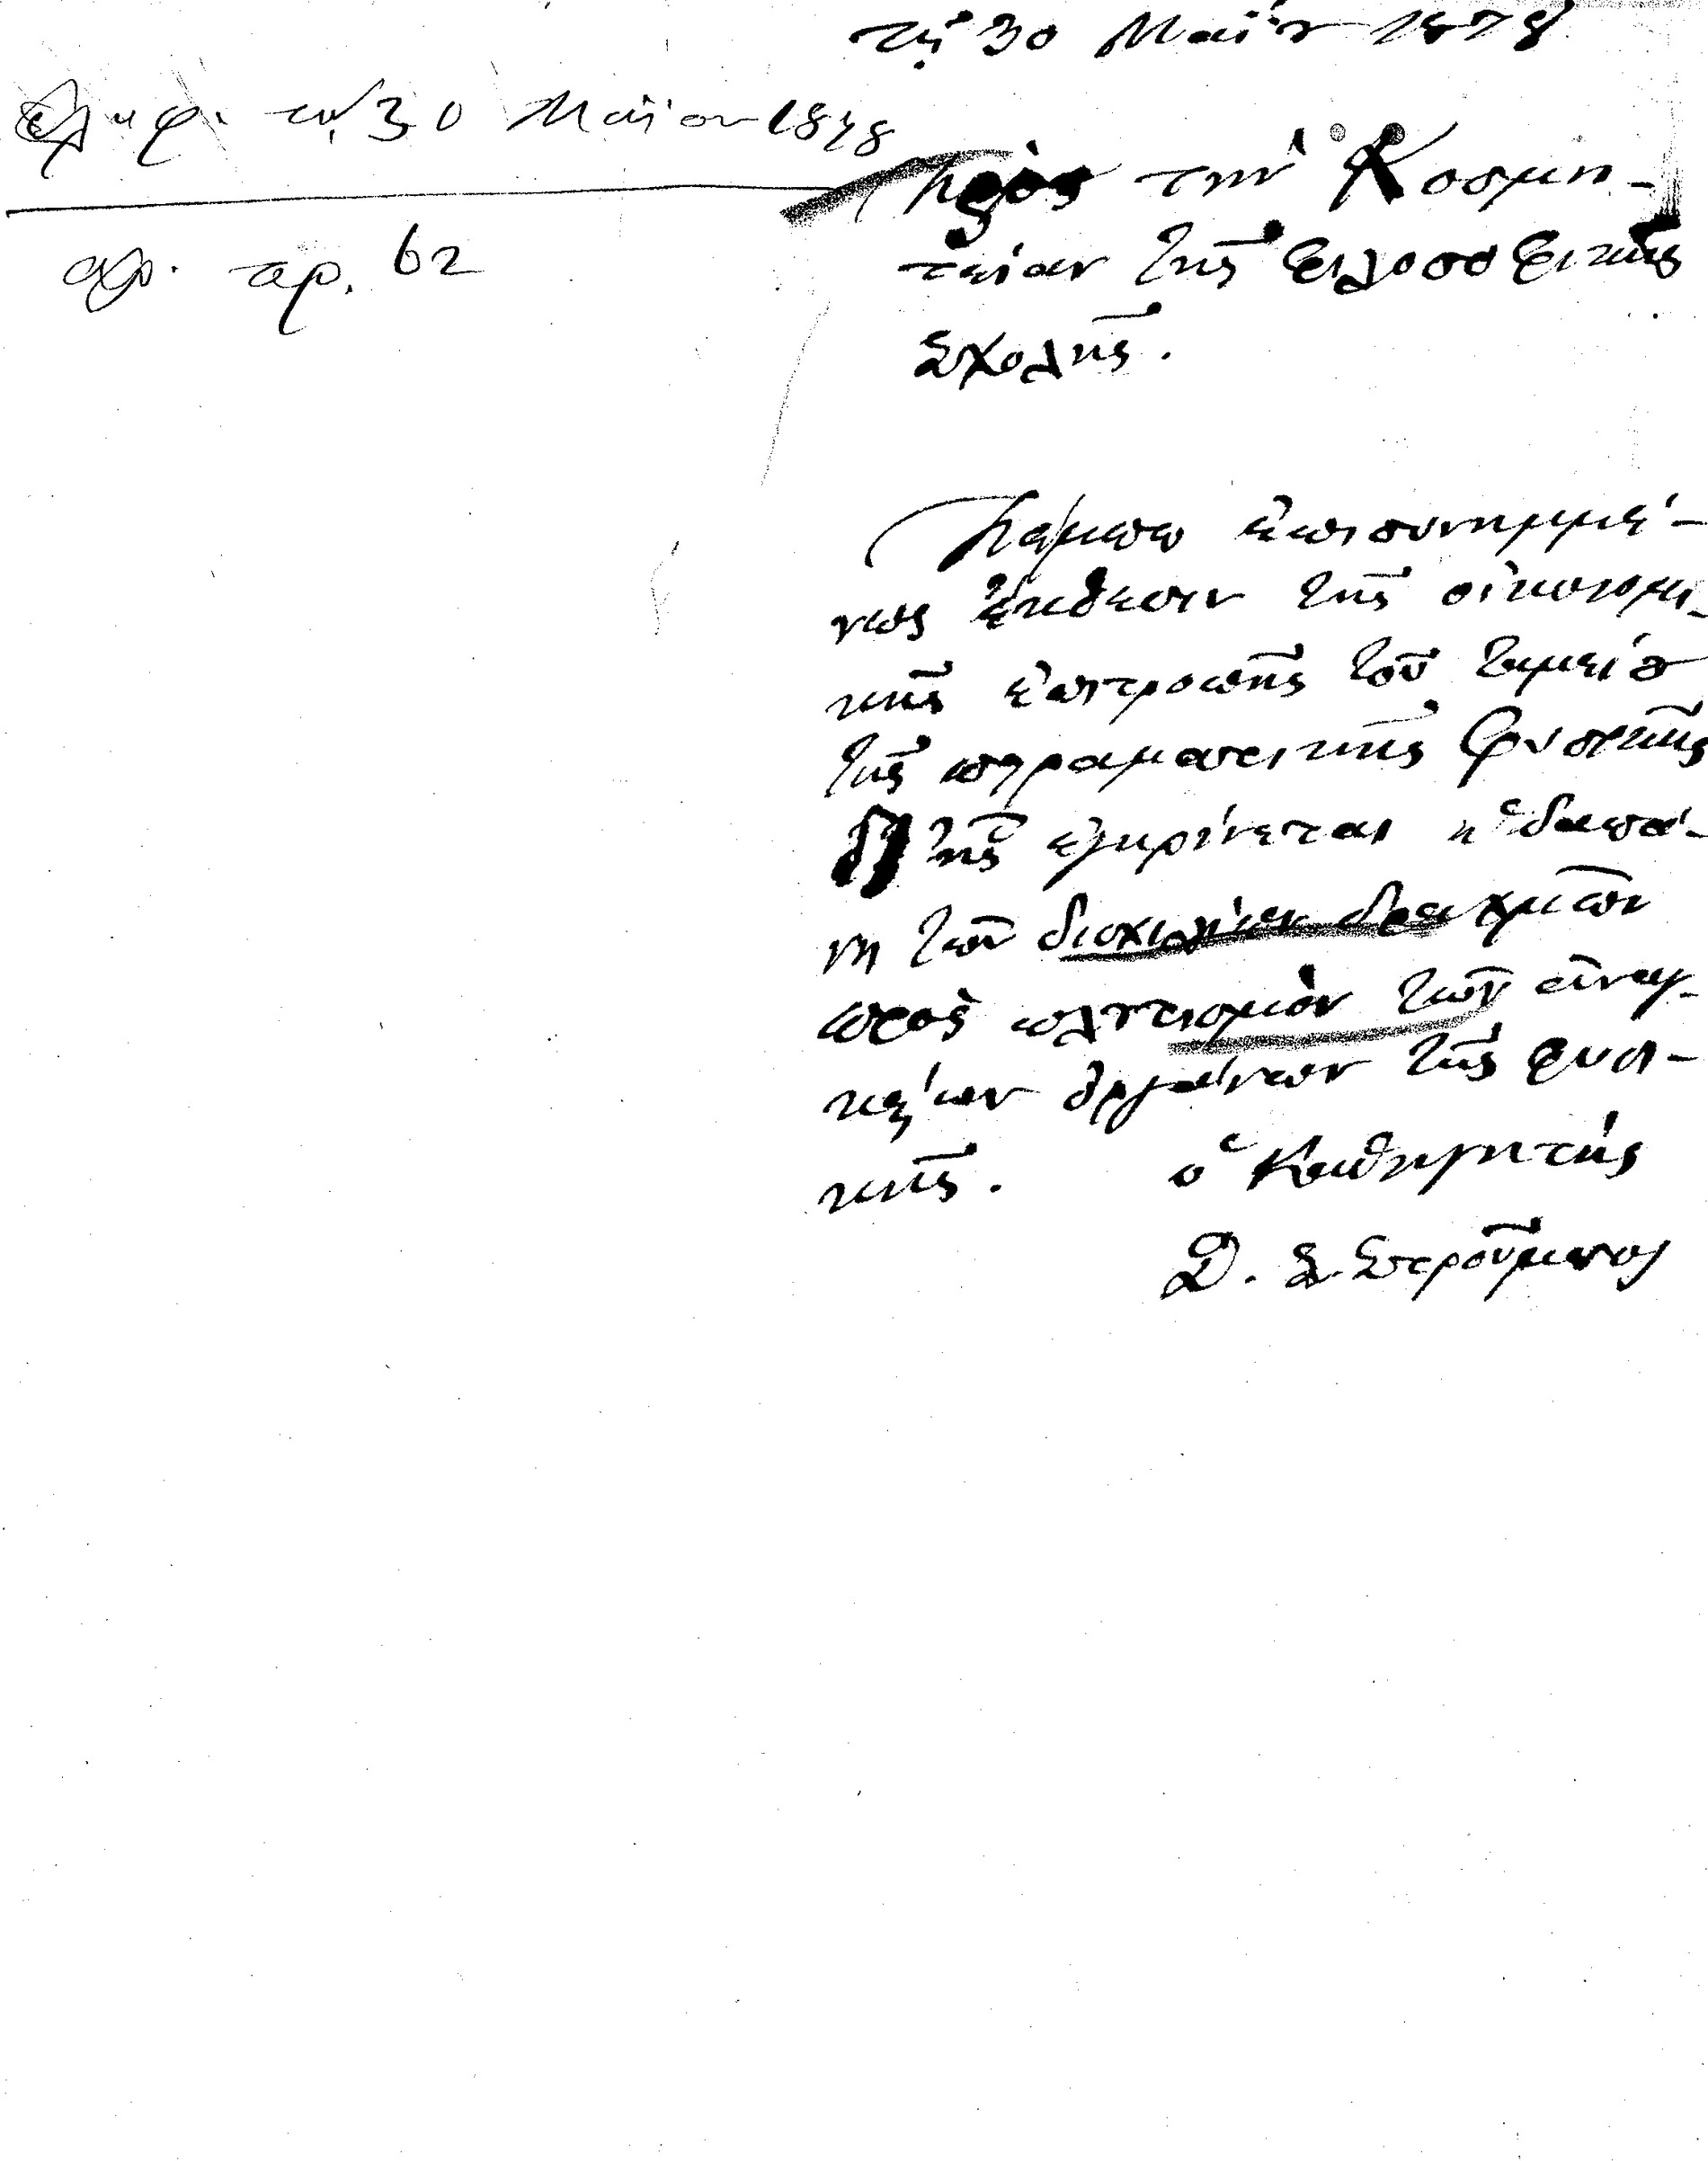 τῇ 30 Μαΐου 1878
Ἐλήφ. τῇ 30 Μαΐου 1878
ἀρ. πρ. 62
Πρὸς τὴν Κοσμη-
τείαν τῆς Φιλοσοφικῆς
Σχολῆς.
Πέμπω ἐπισυνημμέ-
νως ἔκθεσιν τῆς οἰκονομι-
κῆς ἐπιτροπῆς τοῦ ταμείου
τῆς πειραματικῆς Φυσικῆς
δι' ἧς ἐγκρίνεται ἡ δαπά-
νη τῶν δισχιλίων δραχμῶν
πρὸς πλουτισμὸν τῶν ἀναγ-
καίων ὀργάνων τῆς φυσι-
κῆς.
ὁ Καθηγητής
Δ. Σ. Στροῦμπος